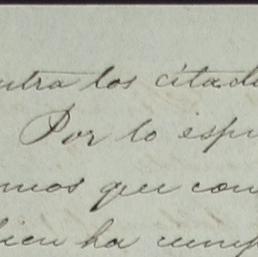 ntra los citad
Por lo espu
mos que con
bien ha cump